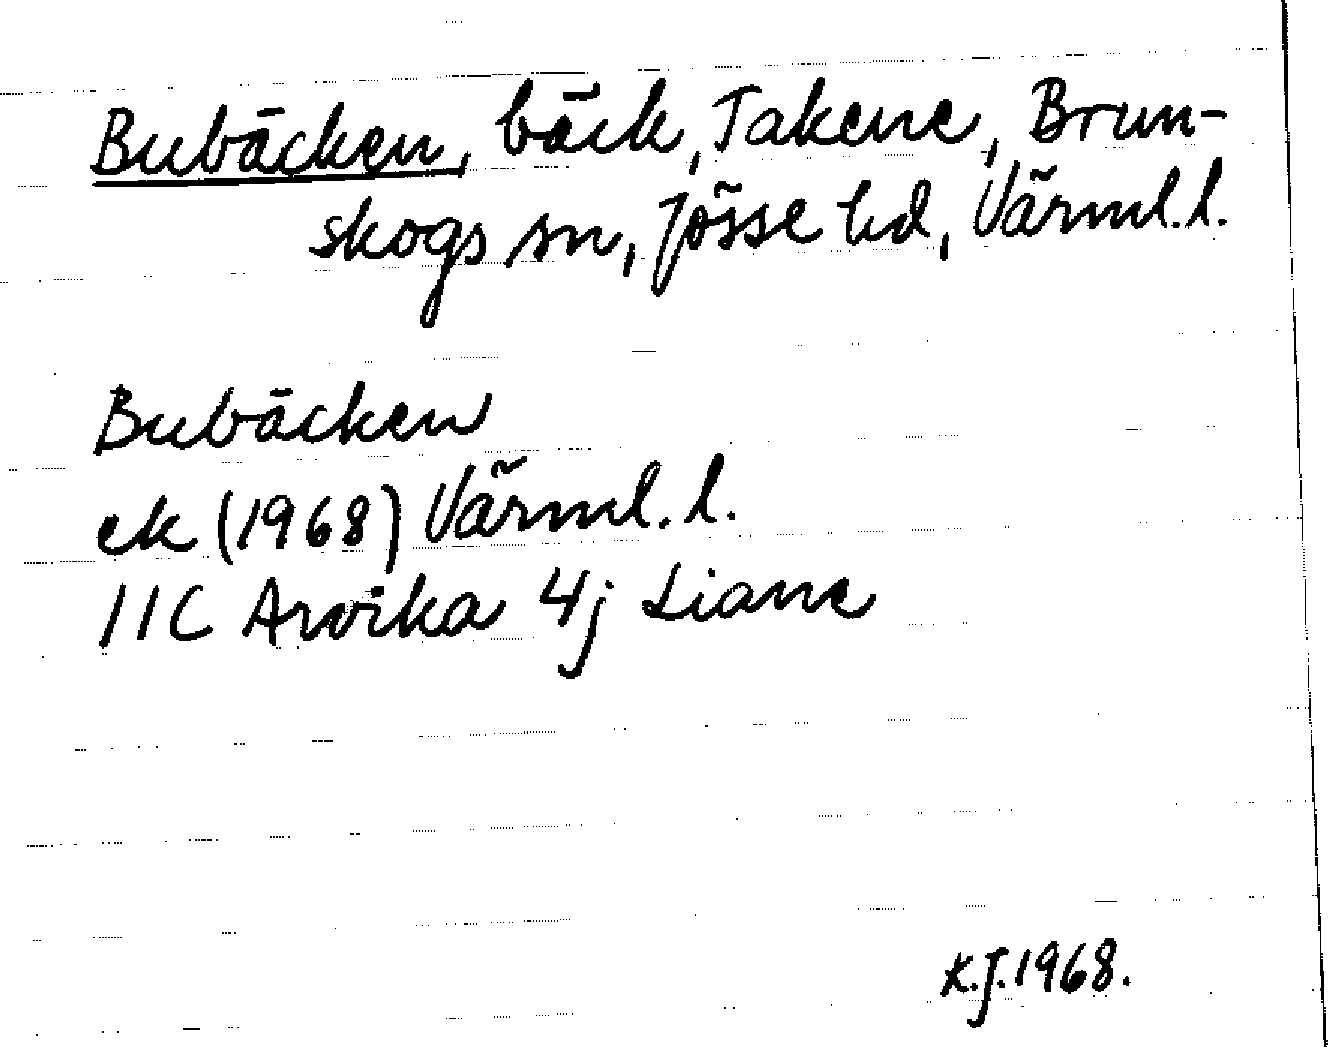 Bubäcken, bäck, Takene, Brun-
skogs sn, Jösse hd, Värml. l.
Bubäcken
ek (1968) Värml. l.
11C Arvika 4j Liane
K.J. 1968.